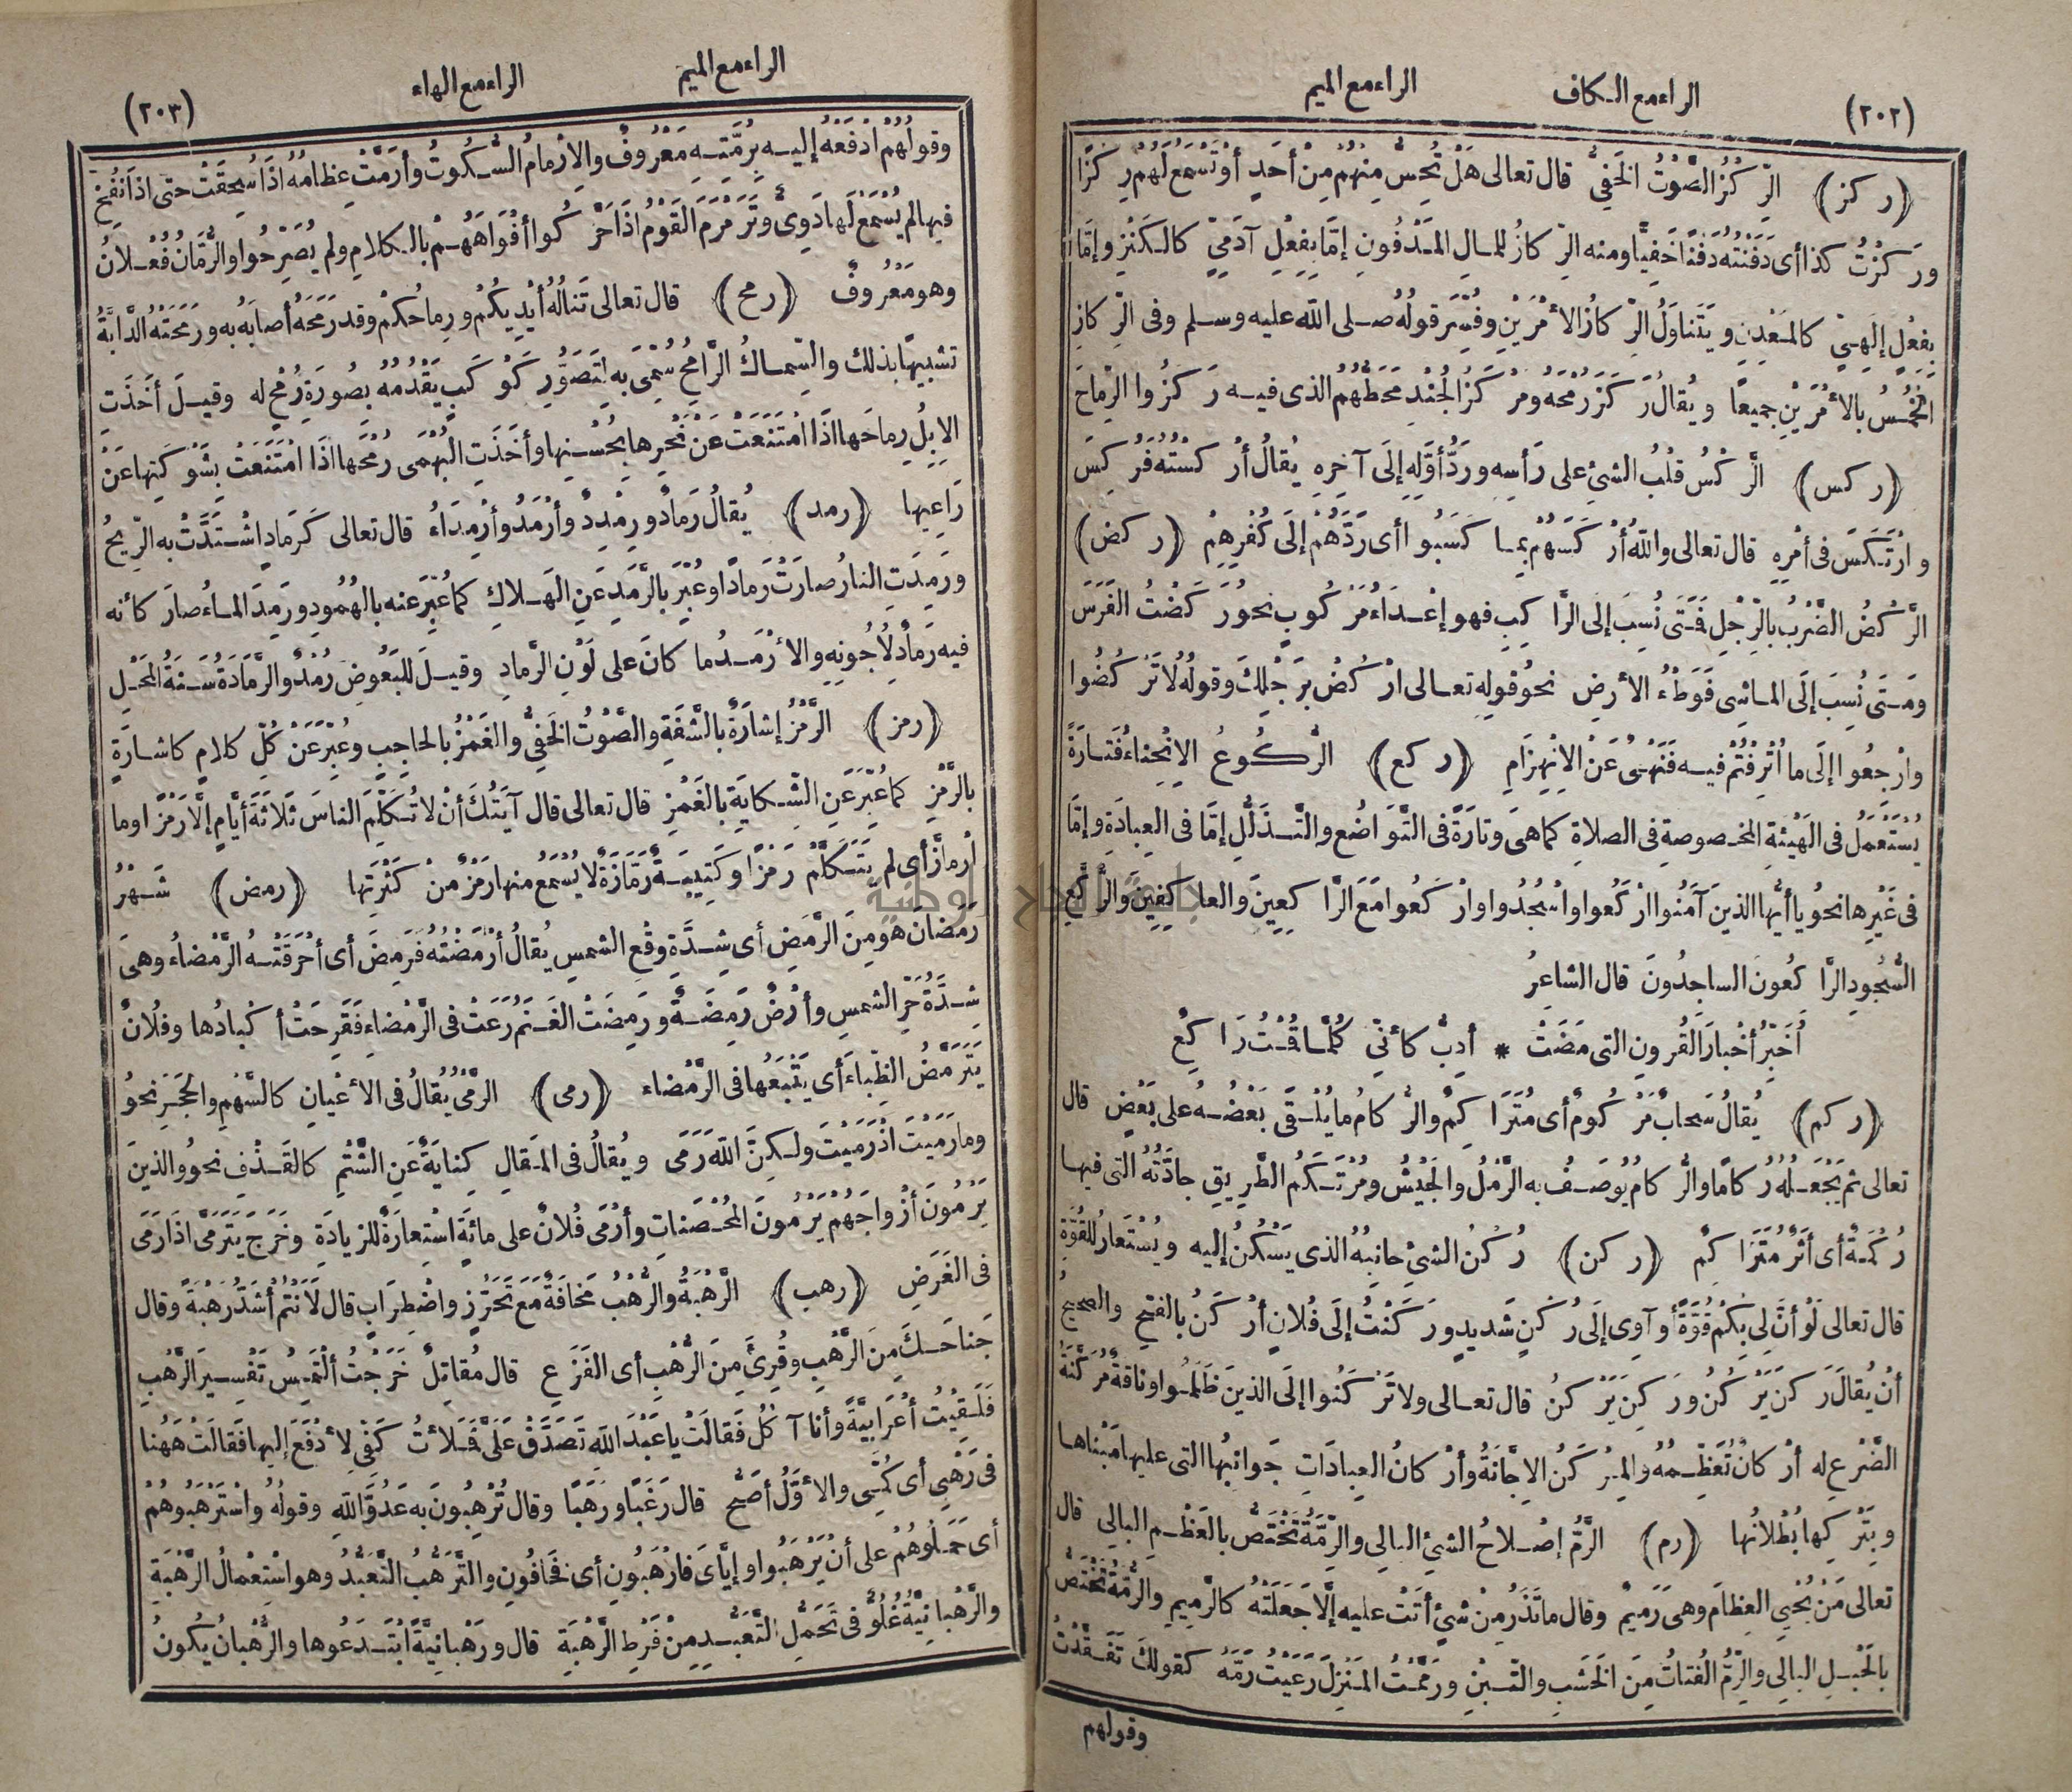 (٢٠٢) الراء مع الكاف الراء مع الميم
(ركز) الرِّكْزُ الصَّوْتُ الخَفِيُّ قال تعالى هَلْ تُحِسُّ مِنْهُمْ مِنْ أَحَدٍ أَوْ تَسْمَعُ لَهُمْ رِكْزًا
ورَكَزْتُ كذا أى دَفَنْتُه دَفْنًا خَفِيًّا ومنه الرِّكازُ للمـال المَدْفُونِ إمَّا بِفِعْلِ آدَمِىٍّ كالكَنْزِ وإمَّا
بِفِعْلٍ إلٰهِىٍّ كالمَعْدِنِ ويَتَناوَلُ الرِّكازُ الأمْرَيْنِ وفُسِّرَ قولُهُ صلى الله عليه وسلم وفى الرِّكازِ
الخُمُسُ بالأمْرَيْنِ جميعًا ويُقالُ رَكَزَ رُمْحَه ومَرْكَزُ الجُنْدِ مَحَطُّهُمُ الذى فيه رَكَزُوا الرِّماحَ
(ركس) الرَّكْسُ قَلْبُ الشئِ على رَأسِه ورَدُّ أوَّلِهِ إلَى آخِرِهِ يُقالُ أرْكَسْتُه فَرُكِسَ
وارْتَكَسَ فى أمْرِهِ قال تعالى واللهُ أرْكَسَهُمْ بما كَسَبُوا أى رَدَّهُمْ إلَى كُفْرِهِمْ (ركض)
الرَّكْضُ الضَّرْبُ بالرِّجْلِ فَمَتَى نُسِبَ إلَى الرَّاكِبِ فهو إعْداءُ مَرْكُوبٍ نحوُ رَكَضْتُ الفَرَسَ
ومَتَى نُسِبَ إلَى المـاشِى فَوَطْءُ الأرضِ نحوُ قولِهِ تعالى ارْكُضْ بِرِجْلِكَ وقولُهُ لا تَرْكُضُوا
وارْجِعُوا إلَى ما أُتْرِفْتُمْ فيه فَنَهْىٌ عَنْ الِانْهِزَامِ (ركع) الرُّكُوعُ الِانْحِناءُ فَتارَةً
يُسْتَعْمَلُ فى الهَيْئَةِ المخصوصةِ فى الصلاةِ كما هِىَ وتارَةً فى التَّوَاضُعِ والتَّذَلُّلِ إمَّا فى العِبادَةِ وإمَّا
فى غَيْرِها نحوُ يا أيُّها الذينَ آمَنُوا ارْكَعُوا واسْجُدُوا وارْكَعُوا مَعَ الرَّاكِعِينَ والعاكِفِينَ والرُّكَّعِ
السُّجُودِ الرَّاكِعُونَ الساجِدُونَ قال الشاعِرُ
أُخَبِّرُ أخْبارَ القُرونِ التى مَضَتْ * أدِبُّ كأنِّى كُلَّمـا قُمْتُ رَاكِعُ
(ركم) يُقالُ سَحابٌ مَرْكُومٌ أى مُتَرَاكِمٌ والرُّكامُ ما يُلْقَى بَعْضُهُ على بَعْضٍ قال
تعالى ثم يَجْعَلُهُ رُكامًا والرُّكامُ يُوصَفُ به الرَّمْلُ والجَيْشُ ومُرْتَكَمُ الطَّرِيقِ جادَّتُهُ التى فيها
رُكْمَةٌ أى أثَرٌ مُتَرَاكِمٌ (ركن) رُكْنُ الشئِ جانِبُهُ الذى يَسْكُنُ إليه ويُسْتَعارُ للقُوَّةِ
قال تعالى لَوْ أنَّ لِى بِكُمْ قُوَّةً أو آوِى إلَى رُكْنٍ شَديدٍ ورَكَنْتُ إلَى فُلانٍ أرْكَنُ بالفتحِ والصحيحُ
أنْ يُقالَ رَكَنَ يَرْكُنُ ورَكِنَ يَرْكَنُ قال تعالى ولا تَرْكَنُوا إلَى الذينَ ظَلَمُوا وناقةٌ مُرَكَّنَةُ
الضَّرْعِ له أرْكانٌ تُعَظِّمُهُ والمِرْكَنُ الإجَّانَةُ وأرْكانُ العِباداتِ جَوانِبُها التى عليها مَبْناها
وبِتَرْكِها بُطْلانُها (رم) الرَّمُّ إصْلاحُ الشئِ البالِى والرِّمَّةُ تَخْتَصُّ بالعَظْمِ البالِى قال
تعالى مَنْ يُحْيِى العِظامَ وهى رَمِيمٌ وقال ما تَذَرُ مِنْ شئٍ أتَتْ عليه إلَّا جَعَلَتْهُ كالرَّمِيمِ والرُّمَّةُ تَخْتَصُّ
بالحَبْلِ البالِى والرِّمُّ الفُتاتُ مِنَ الخَشَبِ والتِّبْنِ ورَمَمْتُ المَنْزِلَ رَعَيْتُ رَمَّهُ كقولكَ تَفَقَّدْتُ
وقولهم
الراء مع الميم الراء مع الهاء (٢٠٣)
وقولُهُمْ ادْفَعْهُ إليه بِرُمَّتِهِ مَعْرُوفٌ والإرْمامُ السُّكُوتُ وأرَمَّتْ عِظامُهُ إذَا سُحِقَتْ حتى إذا نُفِخَ
فيها لم يُسْمَعْ لَها دَوِىٌّ وتَرَمْرَمَ القَوْمُ إذَا حَرَّكُوا أفْوَاهَهُمْ بالكلامِ ولم يُصَرِّحُوا والرُّمَّانُ فُعْلانُ
وهو مَعْرُوفٌ (رمح) قال تعالى تَنالُهُ أيْدِيكُمْ ورِماحُكُمْ وقد رَمَحَهُ أصابَهُ به ورَمَحَتْهُ الدَّابَّةُ
تشبيهًا بذلك والسِّماكُ الرَّامِحُ سُمِّىَ به لِتَصَوُّرِ كَوْكَبٍ يَقْدُمُهُ بِصُورَةِ رُمْحٍ له وقيلَ أخَذَتِ
الإبِلُ رِماحَها إذَا امْتَنَعَتْ عَنْ نَحْرِها بحُسْنِها وأخَذَتِ البُهْمَى رُمْحَها إذَا امْتَنَعَتْ بشَوْكَتِها عَنْ
رَاعِيها (رمد) يُقالُ رَمادٌ ورِمْدِدٌ وأرْمَدُ وأرْمِدَاءُ قال تعالى كَرَمادٍ اشْتَدَّتْ به الرِّيحُ
ورَمِدَتِ النارُ صارَتْ رَمادًا وعُبِّرَ بالرَّمَدِ عَنِ الهَلاكِ كما عُبِّرَ عنه بالهُمُودِ ورَمِدَ المـاءُ صارَ كأنه
فيه رَمادٌ لِأُجُونِهِ والأرْمَدُ ما كانَ على لَوْنِ الرَّمادِ وقيلَ للبَعُوضِ رُمْدٌ والرَّمَادَةُ سَنَةُ المَحْلِ
(رمز) الرَّمْزُ إشارَةٌ بالشَّفَةِ والصَّوْتُ الخَفِىُّ والغَمْزُ بالحاجِبِ وعُبِّرَ عَنْ كُلِّ كلامٍ كاشارَةٍ
بالرَّمْزِ كما عُبِّرَ عَنِ الشِّكايَةِ بالغَمْزِ قال تعالى قال آيَتُكَ أنْ لا تُكَلِّمَ الناسَ ثَلاثَةَ أيَّامٍ إلَّا رَمْزًا وما
أرْمازَّ أى لم يَتَكَلَّمْ رَمْزًا وكَتِيبَةٌ رَمَّازَةٌ لا يُسْمَعُ منها رَمْزٌ مِنْ كَثْرَتِها (رمض) شَهْرُ
رَمَضانَ هُو مِنَ الرَّمَضِ أى شِدَّةِ وقْعِ الشمسِ يُقالُ أرْمَضَتْهُ فَرَمِضَ أى أحْرَقَتْهُ الرَّمْضاءُ وهِىَ
شِدَّةُ حَرِّ الشمسِ وأرْضٌ رَمِضَةٌ ورَمِضَتْ الغَنَمُ رَعَتْ فى الرَّمْضاءِ فَقَرِحَتْ أكْبادُها وفُلانٌ
يَتَرَمَّضُ الظِّباءَ أى يَتْبَعُها فى الرَّمْضاء (رمى) الرَّمْىُ يُقالُ فى الأعْيانِ كالسَّهْمِ والحَجَرِ نحوُ
وما رَمَيْتَ إذْ رَمَيْتَ ولكِنَّ اللهَ رَمَى ويُقالُ فى المَقالِ كِنايَةً عَنِ الشَّتْمِ كالقَذْفِ نحوُ والذينَ
يَرْمُونَ أزْوَاجَهُمْ يَرْمُونَ المُحْصَناتِ وأرْمَى فُلانٌ على مائَةٍ اسْتِعارَةً للزيادَةِ وخَرَجَ يَتَرَمَّى إذَا رَمَى
فى الغَرَضِ (رهب) الرَّهْبَةُ والرُّهْبُ مَخافَةٌ مَعَ تَحَرُّزٍ واضْطِرَابٍ قال لَأنْتُمْ أشَدُّ رَهْبَةً وقال
جَناحَكَ مِنَ الرَّهْبِ وقُرِئَ مِنَ الرُّهْبِ أى الفَزَعِ قال مُقاتِلٌ خَرَجْتُ ألْتَمِسُ تَفْسِيرَ الرَّهْبِ
فَلَقِيتُ أعْرَابِيَّةً وأنا آكُلُ فَقالَتْ يا عَبْدَ اللهِ تَصَدَّقْ عَلَىَّ فَمَلأتُ كَفِّى لِأدْفَعَ إليها فَقالَتْ هٰهُنا
فى رَهْبِى أى كُمِّى والأوَّلُ أصَحُّ قال رَغَبًا ورَهَبًا وقال تُرْهِبُونَ به عَدُوَّ اللهِ وقولُهُ واسْتَرْهَبُوهُمْ
أى حَمَلُوهُمْ على أنْ يَرْهَبُوا وإيَّاىَ فارْهَبُونِ أى فَخافُونِ والتَّرَهُّبُ التَّعَبُّدُ وهو اسْتِعْمالُ الرَّهْبَةِ
والرَّهْبانِيَّةُ غُلُوٌّ فى تَحَمُّلِ التَّعَبُّدِ مِنْ فَرْطِ الرَّهْبَةِ قال ورَهْبانِيَّةً ابْتَدَعُوها والرُّهْبانُ يكونُ